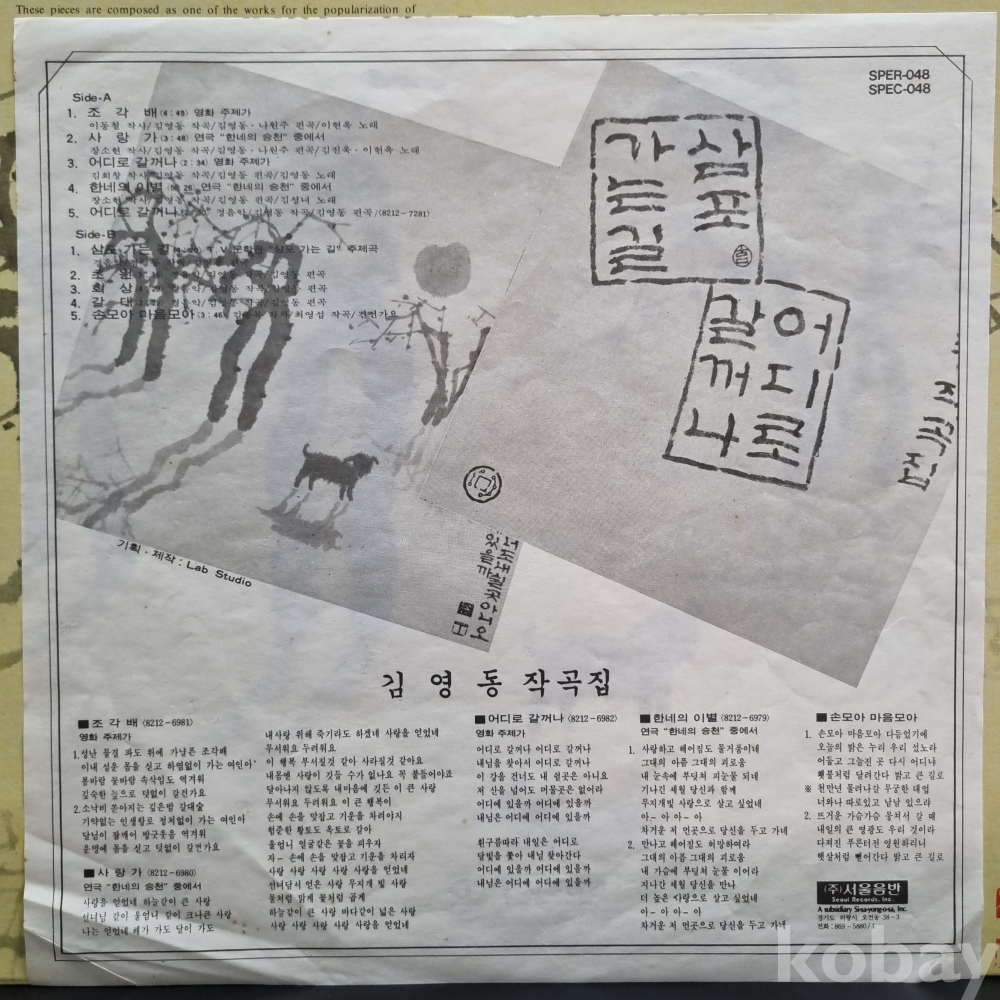 These pieces are composed as one of the works for the popularization of
SPER-048
SPEC-048
Side-A
1. 조 각 배 (4:45) 영화 주제가
이동철 작사/김영동 작곡/김영동·나원주 편곡/이현옥 노래
2. 사 랑 가 (3:48) 연극 "한네의 승천" 중에서
장소현 작사/김영동 작곡/김영동·나원주 편곡/김전욱·이현옥 노래
3. 어디로 갈꺼나 (2:34) 영화 주제가
김희창 작사/김영동 작곡/김영동 편곡/김영동 노래
4. 한네의 이별 연극 "한네의 승천" 중에서
장소현 작사/김영동 작곡/김영동 편곡/김성녀 노래
5. 어디로 갈꺼나 경음악/김영동 작곡/김영동 편곡/(8212-7281)
Side-B
1. 삼포 가는 길 T.V 문학관 "삼포 가는 길" 주제곡
2. 초 원 경음악/김영동 작곡/김영동 편곡
3. 회 상 경음악/김영동 작곡/김영동 편곡
4. 갈 대 경음악/김영동 작곡/김영동 편곡
5. 손모아 마음모아 (3:46) 작사/최영섭 작곡/건전가요
삼포
가는길
어디로
갈꺼나
기획·제작: Lab Studio
너도 내 쉴 곳 아니오
있을까
김 영 동 작곡집
■조 각 배 (8212-6981)
영화 주제가
1. 성난 물결 파도 위에 가냘픈 조각배
이내 설운 몸을 싣고 하염없이 가는 여인아
봄바람 꽃바람 속삭임도 역겨워
깊숙한 늪으로 덧없이 갈건가요
2. 소낙비 쏟아지는 깊은밤 갈대숲
기약없는 인생항로 정처없이 가는 여인아
달님이 잠깨어 방긋웃음 역겨워
운명에 몸을 싣고 덧없이 갈건가요
■사 랑 가 (8212-6980)
연극 "한네의 승천" 중에서
사랑을 얻었네 하늘같이 큰 사랑
선녀님 같이 울엄니 같이 크나큰 사랑
나는 얻었네 해가 가도 달이 가도
내사랑 위해 죽기라도 하겠네 사랑을 얻었네
무서워요 두려워요
이 행복 부서질것 같아 사라질것 같아요
내몸엔 사랑이 깃들 수가 없나요 꼭 붙들어야죠
달아나지 않도록 내마음에 깃든 이 큰 사랑
무서워요 두려워요 이 큰 행복이
손에 손을 맞잡고 기운을 차려야지
험준한 황토도 옥토로 갈아
울엄니 얼굴같은 꽃을 피우자
자- 손에 손을 맞잡고 기운을 차리자
사랑 사랑 사랑 사랑 사랑을 얻었네
선녀님서 얻은 사랑 무지개 빛 사랑
물처럼 맑게 꽃처럼 곱게
하늘같이 큰 사랑 바다같이 넓은 사랑
사랑 사랑 사랑 사랑 사랑을 얻었네
■어디로 갈꺼나 (8212-6982)
영화 주제가
어디로 갈꺼나 어디로 갈꺼나
내님을 찾아서 어디로 갈꺼나
이 강을 건너도 내 쉴곳은 아니요
저 산을 넘어도 머물곳은 없어라
어디에 있을까 어디에 있을까
내님은 어디에 어디에 있을까
흰구름따라 내일은 어디로
달빛을 쫓아 내님 찾아간다
어디에 있을까 어디에 있을까
내님은 어디에 어디에 있을까
■한네의 이별 (8212-6979)
연극 "한네의 승천" 중에서
1. 사랑하고 헤어짐도 물거품이네
그대의 아픔 그대의 괴로움
내 눈속에 부딪쳐 피눈물 되네
기나긴 세월 당신과 함께
무지개빛 사랑으로 살고 싶었네
아- 아- 아- 아
차거운 저 먼곳으로 당신을 두고 가네
2. 만나고 헤어짐도 허망하여라
그대의 아픔 그대의 괴로움
내 가슴에 부딪쳐 피눈물 이어라
지나간 세월 당신을 만나
더 높은 사랑으로 살고 싶었네
아- 아- 아- 아
차거운 저 먼곳으로 당신을 두고 가네
■손모아 마음모아
1. 손모아 마음모아 다듬었기에
오늘의 밝은 누리 우리 섰노라
어둡고 그늘진 곳 다시 어디냐
햇꽃처럼 달려간다 밝고 큰 길로
※ 천만년 물려나갈 무궁한 대업
너와나 따로있고 남남 있으랴
2. 뜨거운 가슴가슴 뭉쳐서 갈 때
내일의 큰 영광도 우리 것이라
다져진 푸른터전 영원하리니
햇살처럼 뻗어간다 밝고 큰 길로
(주)서울음반
Seoul Records. Inc.
A subsidiary Si-sa-yong-o-sa, Inc.
경기도 의왕시 오전동 38-3
전화: 869-5880/1
kobay